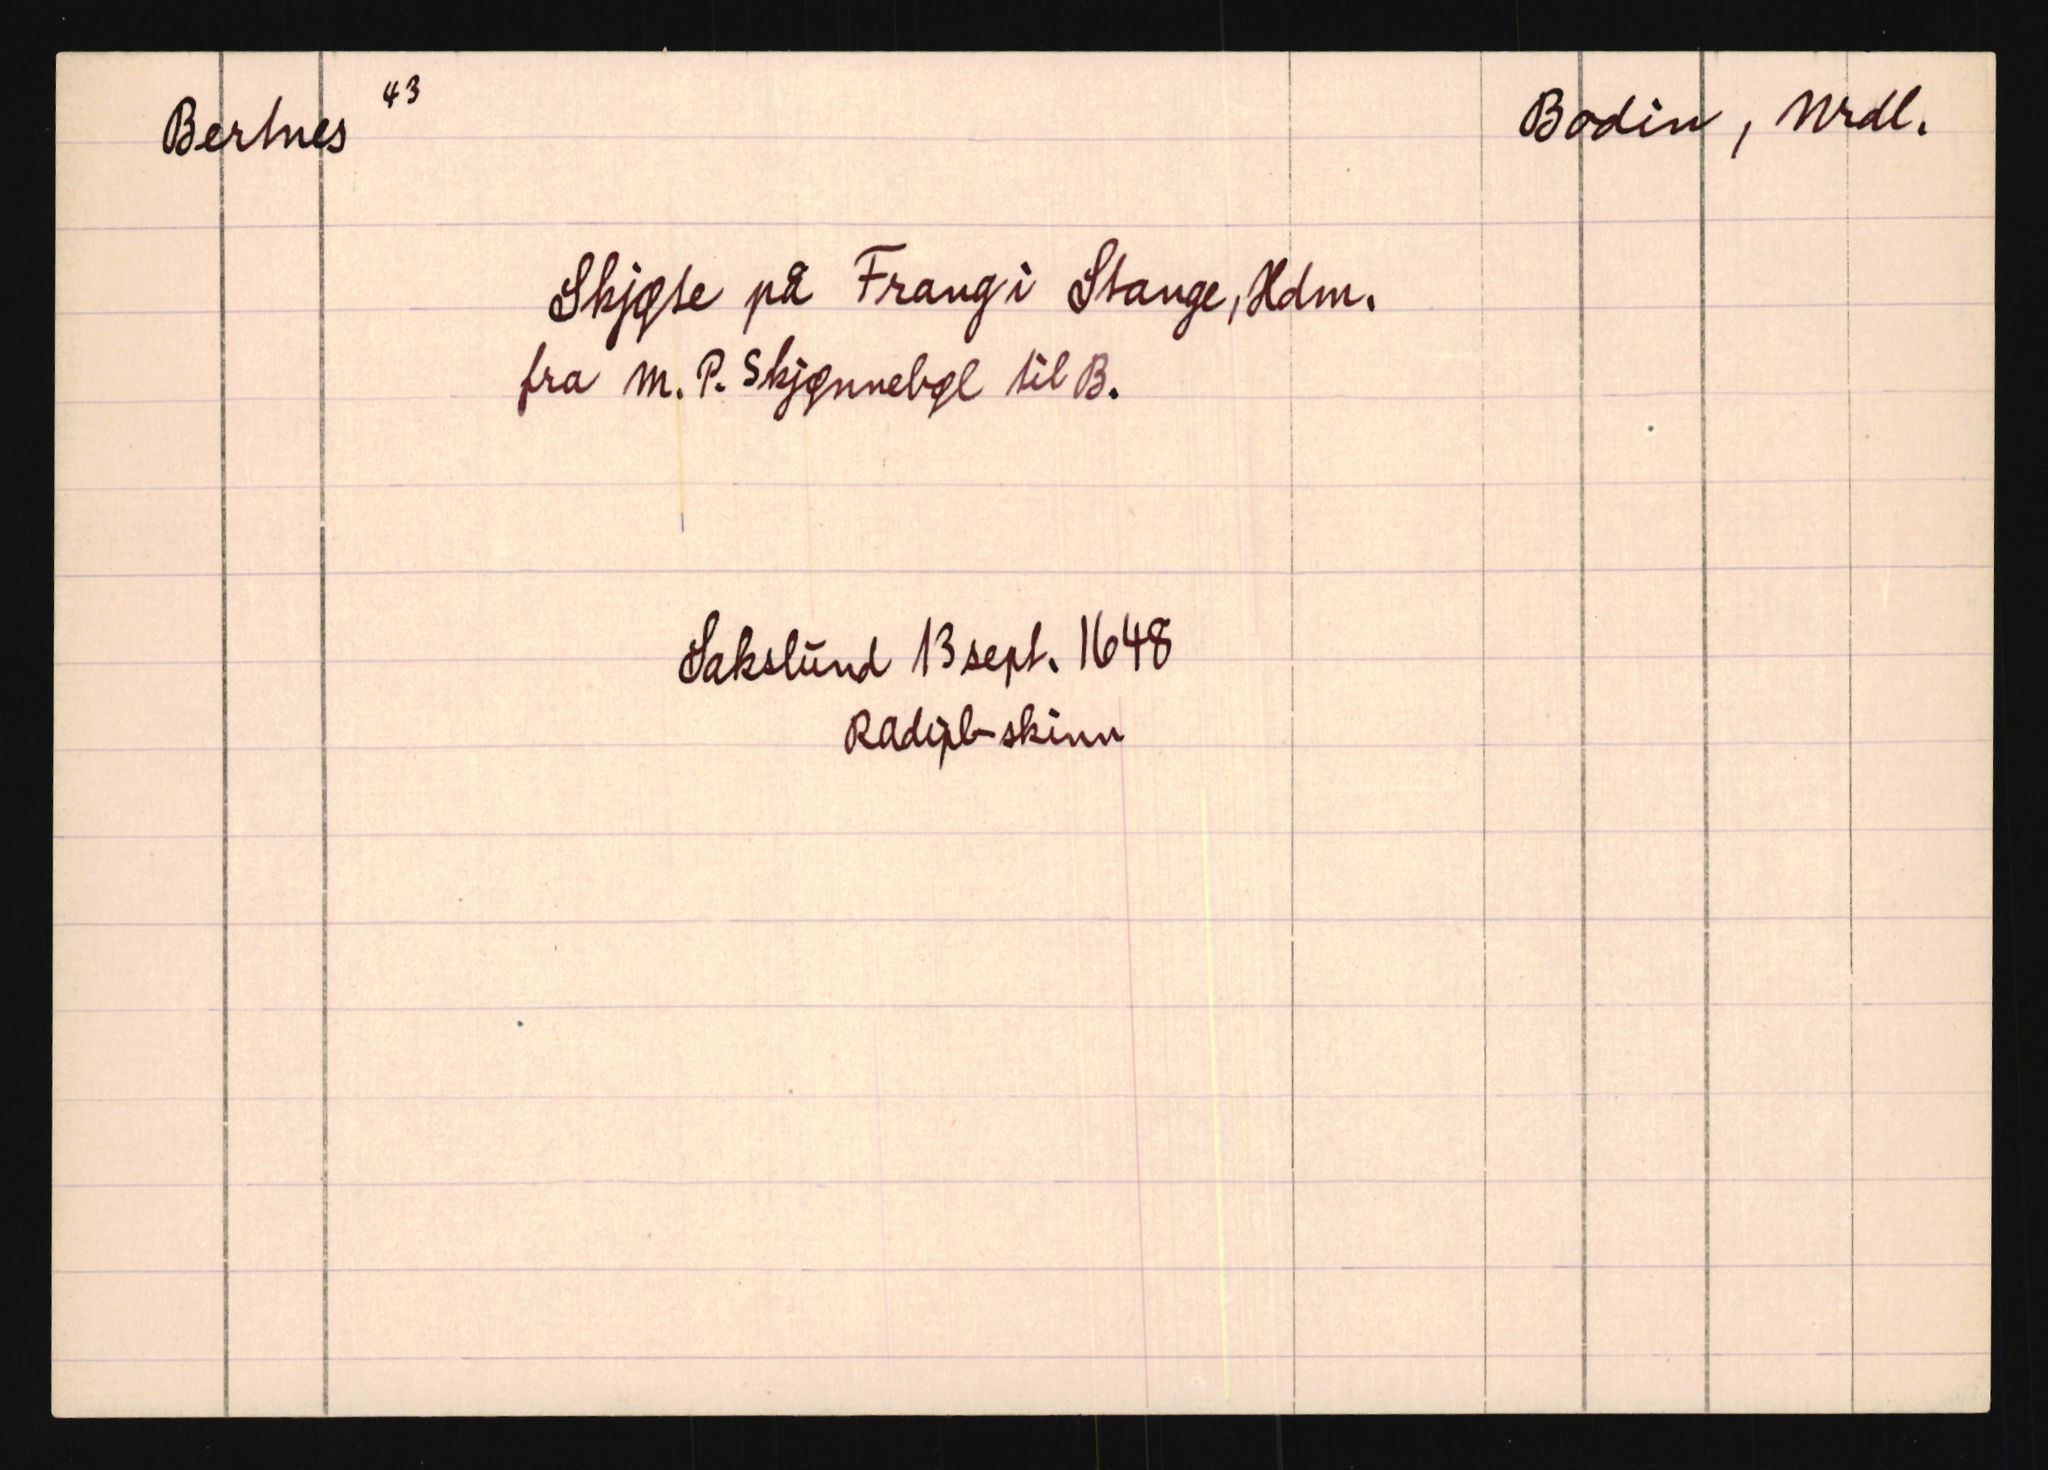 Bertnes 43
Bodin, Nrdl.
Skjøte på Frang i Stange, Hdm.
fra M. P. Skjønnebøl til B.
Sakslund 13 sept. 1648
RAdipl-skinn